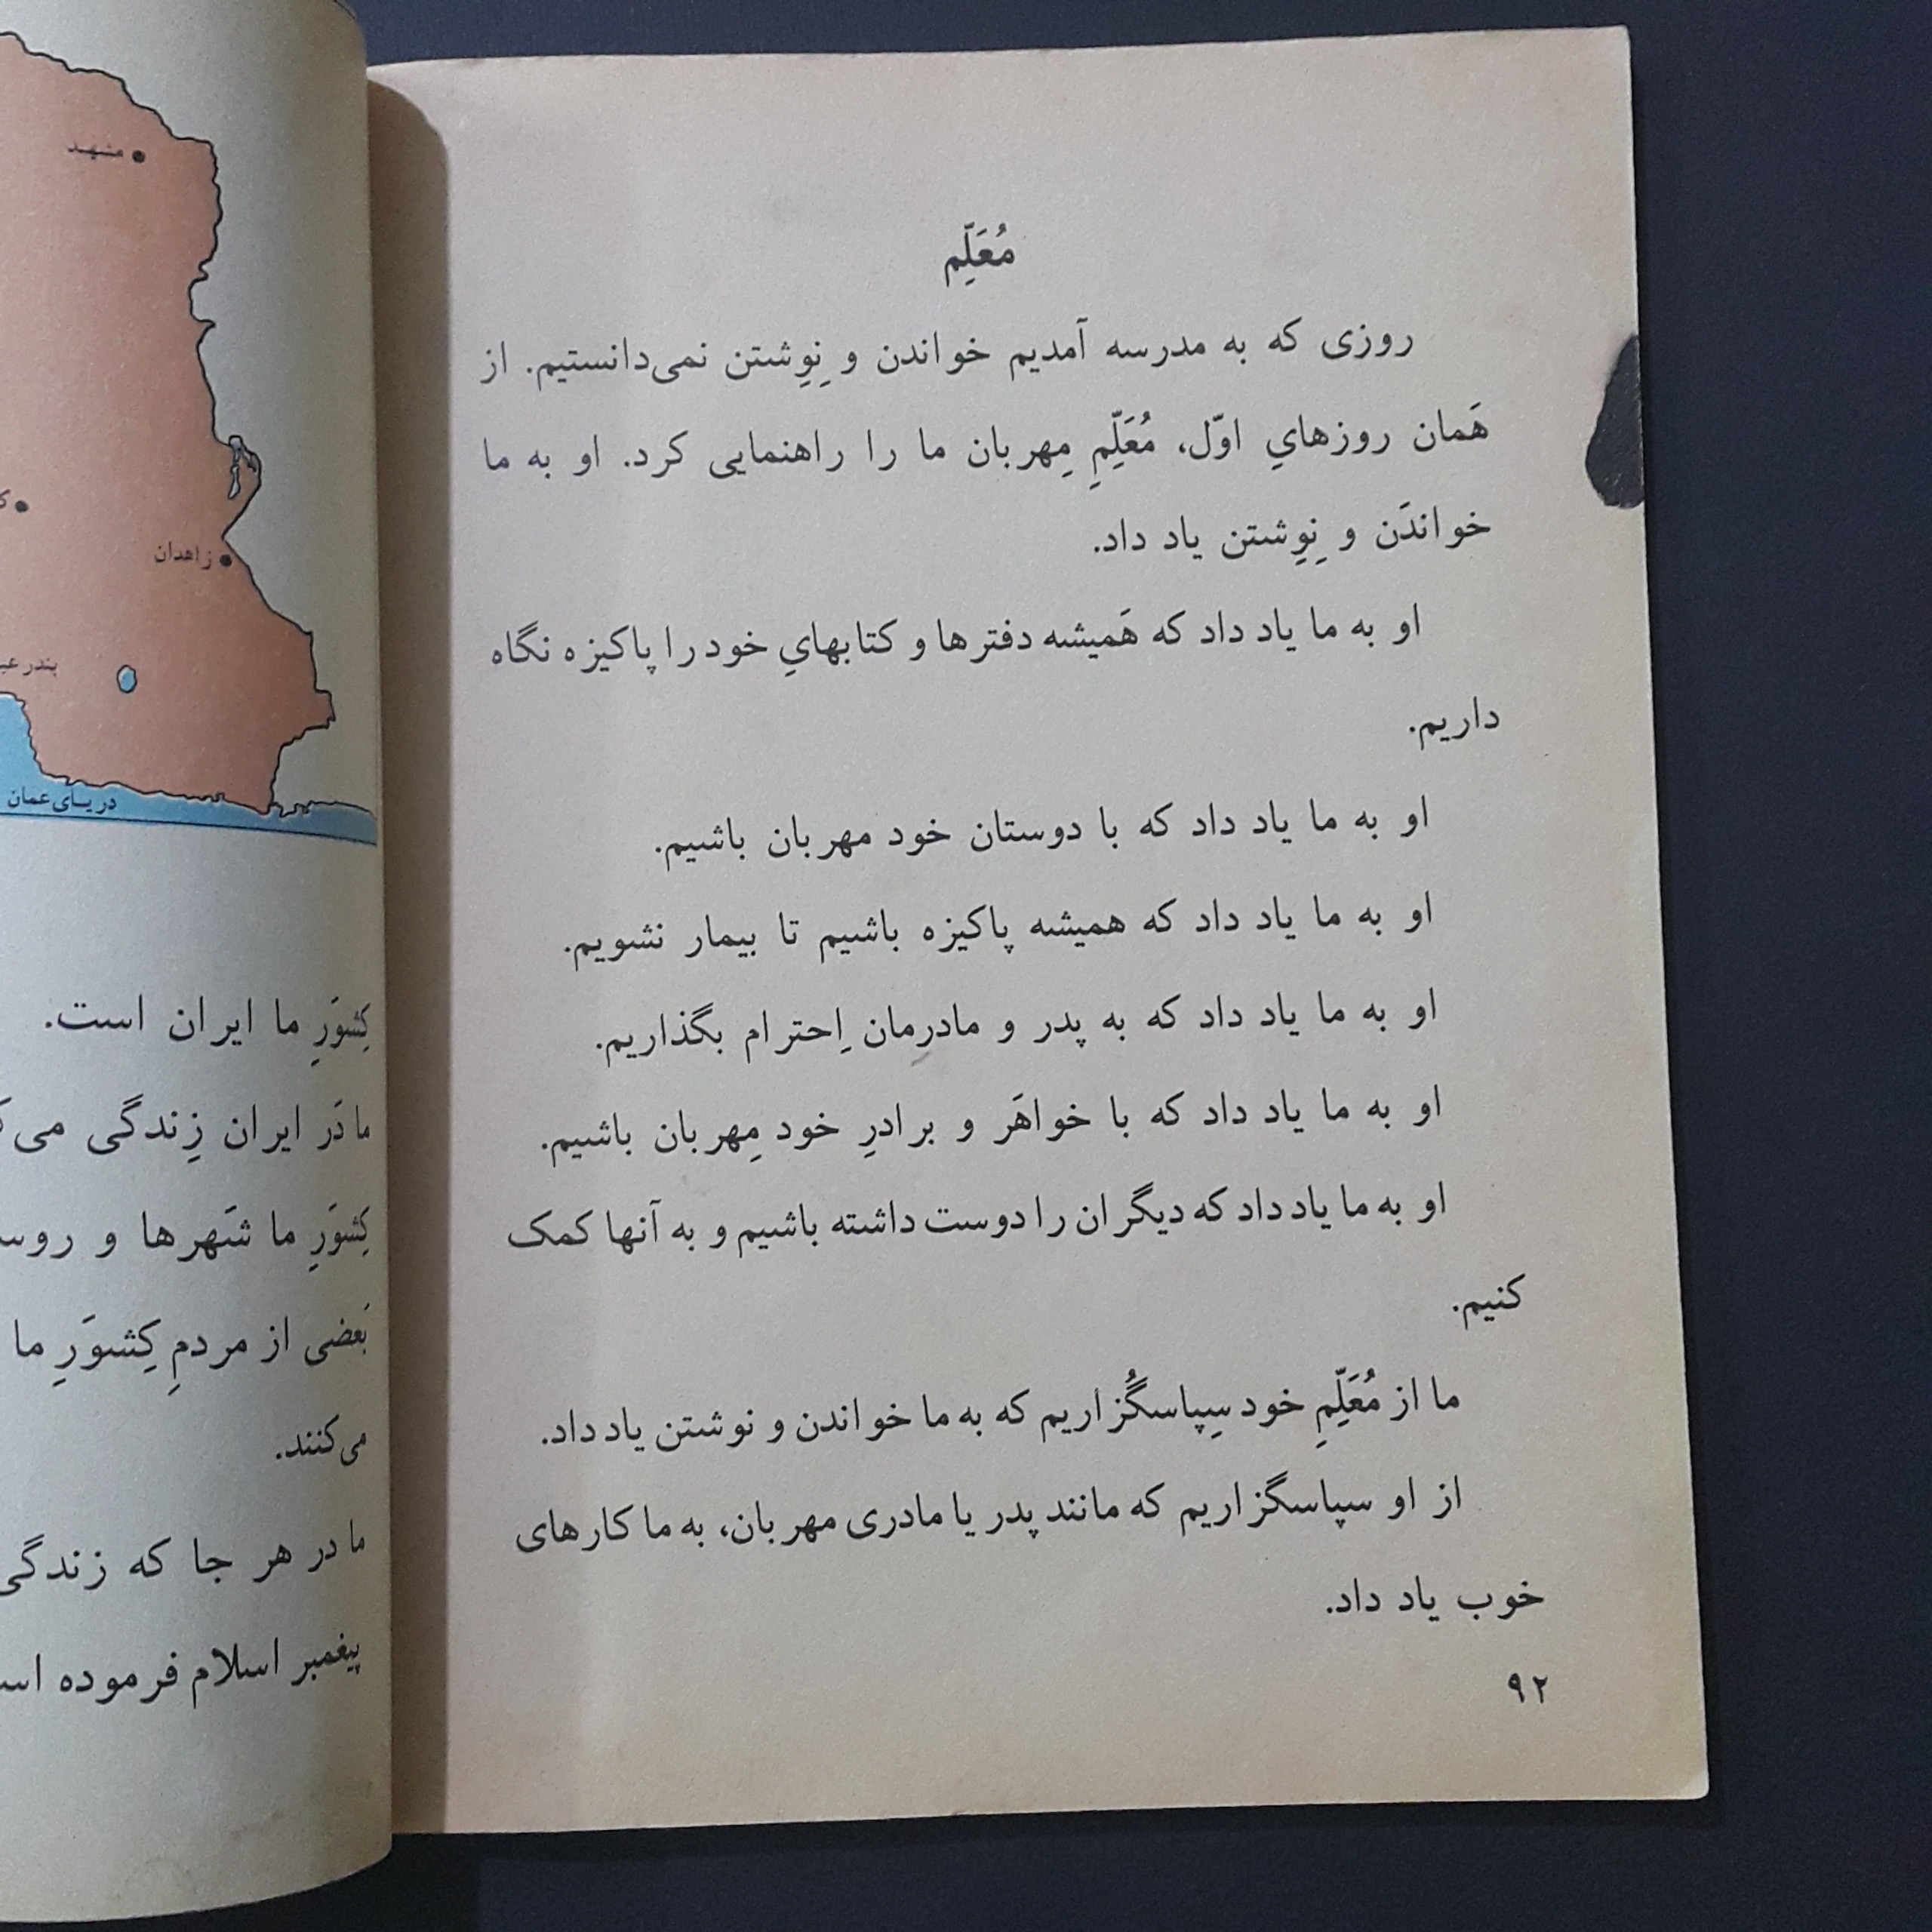 مُعَلِّم
روزی که به مدرسه آمدیم خواندن و نِوِشتن نمی‌دانستیم. از
هَمان روزهايِ اوّل، مُعَلِّمِ مِهربان ما را راهنمایی کرد. او به ما
خواندَن و نِوِشتن یاد داد.
او به ما یاد داد که هَمیشه دفترها و کتابهايِ خود را پاکیزه نگاه
داریم.
او به ما یاد داد که با دوستان خود مهربان باشیم.
او به ما یاد داد که همیشه پاکیزه باشیم تا بیمار نشویم.
او به ما یاد داد که به پدر و مادرِمان اِحترام بگذاریم.
او به ما یاد داد که با خواهَر و برادرِ خود مِهربان باشیم.
او به ما یاد داد که دیگران را دوست داشته باشیم و به آنها کمک
کنیم.
ما از مُعَلِّمِ خود سِپاسگُزاریم که به ما خواندن و نوشتن یاد داد.
از او سپاسگزاریم که مانند پدر یا مادری مهربان، به ما کارهای
خوب یاد داد.
۹۲
مشهد
زاهدان
بندر
دریای عمان
کِشوَرِ ما ایران است.
ما دَر ایران زِندگی
کِشوَرِ ما شَهرها و
بَعضی از مردمِ کِشوَرِ ما
می‌کنند.
ما در هر جا که زندگی
پیغمبر اسلام فرموده